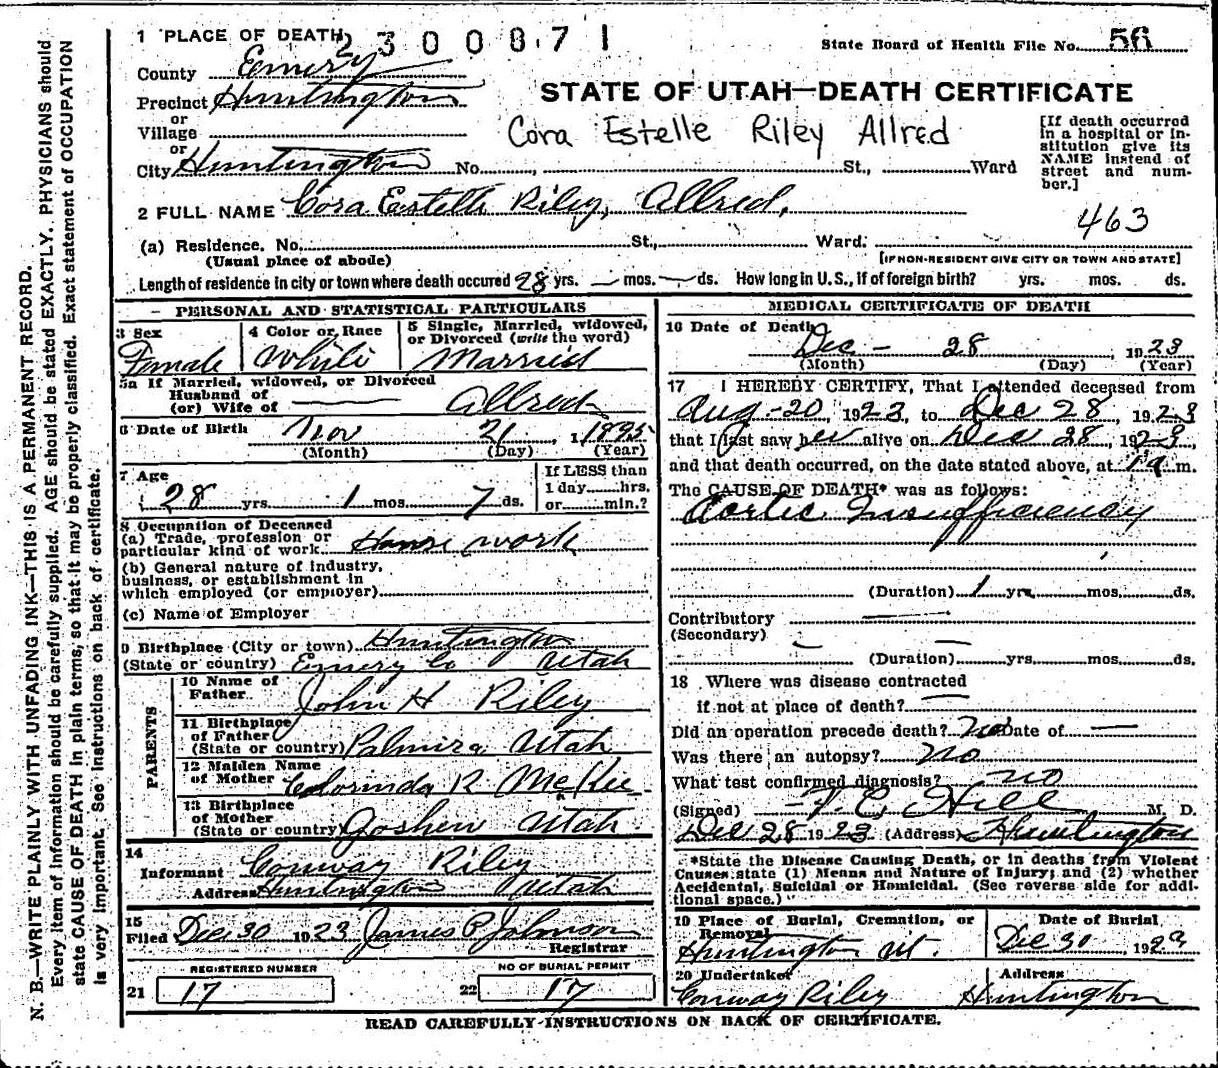 N. B.—WRITE PLAINLY WITH UNFADING INK—THIS IS A PERMANENT RECORD.
Every item of information should be carefully supplied. AGE should be stated EXACTLY. PHYSICIANS should
state CAUSE OF DEATH in plain terms, so that it may be properly classified. Exact statement of OCCUPATION
is very important. See instructions on back of certificate.
1 PLACE OF DEATH
2300871
State Board of Health File No. 56
County Emery
Precinct Huntington
or
Village
or
City Huntington No. St., Ward
STATE OF UTAH—DEATH CERTIFICATE
Cora Estelle Riley Allred
[If death occurred
in a hospital or in-
stitution give its
NAME instead of
street and num-
ber.]
2 FULL NAME Cora Estelle Riley, Allred,
463
(a) Residence. No. St., Ward.
(Usual place of abode) [IF NON-RESIDENT GIVE CITY OR TOWN AND STATE]
Length of residence in city or town where death occured 28 yrs. — mos. — ds. How long in U.S., if of foreign birth? yrs. mos. ds.
PERSONAL AND STATISTICAL PARTICULARS
3 Sex
Female
4 Color or Race
White
5 Single, Married, widowed,
or Divorced (write the word)
Married
5a If Married, widowed, or Divorced
Husband of
(or) Wife of — Allred
6 Date of Birth Nov 21, 1895
(Month) (Day) (Year)
7 Age
28 yrs. 1 mos. 7 ds.
If LESS than
1 day hrs.
or min.?
8 Occupation of Deceased
(a) Trade, profession or
particular kind of work House work
(b) General nature of industry,
business, or establishment in
which employed (or employer)
(c) Name of Employer
9 Birthplace (City or town) Huntington
(State or country) Emery Co Utah
PARENTS
10 Name of
Father John H Riley
11 Birthplace
of Father
(State or country) Palmira Utah
12 Maiden Name
of Mother Clorinda R McKee
13 Birthplace
of Mother
(State or country) Goshen Utah
14
Informant Conway Riley
Address Huntington Utah
15
Filed Dec 30 1923 James P Johnson
Registrar
REGISTERED NUMBER
21 17
NO OF BURIAL PERMIT
22 17
MEDICAL CERTIFICATE OF DEATH
16 Date of Death
Dec - 28, 1923
(Month) (Day) (Year)
17 I HEREBY CERTIFY, That I attended deceased from
Aug-20, 1923, to Dec 28, 1923
that I last saw her alive on Dec 28, 1923,
and that death occurred, on the date stated above, at 1 a m.
The CAUSE OF DEATH* was as follows:
Aortic Insufficiency
(Duration) 1 yrs. mos. ds.
Contributory —
(Secondary)
(Duration) yrs. mos. ds.
18 Where was disease contracted
if not at place of death? —
Did an operation precede death? No Date of —
Was there an autopsy? No
What test confirmed diagnosis? no
(Signed) Hill M. D.
Dec 28 1923 (Address) Huntington
*State the Disease Causing Death, or in deaths from Violent
Causes state (1) Means and Nature of Injury; and (2) whether
Accidental, Suicidal or Homicidal. (See reverse side for addi-
tional space.)
19 Place of Burial, Cremation, or
Removal
Huntington Ut.
Date of Burial
Dec 30 1923
20 Undertaker
Conway Riley
Address
Huntington
READ CAREFULLY INSTRUCTIONS ON BACK OF CERTIFICATE.